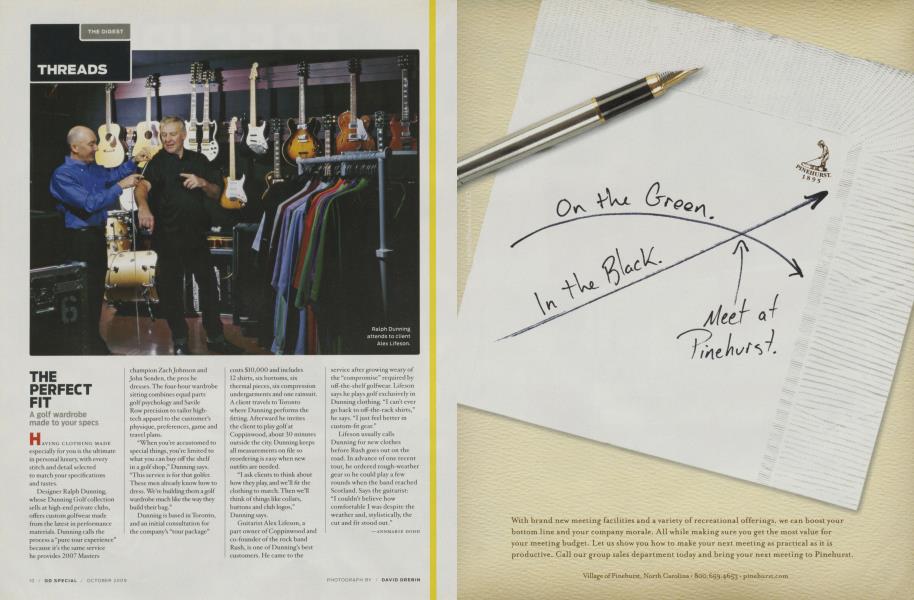 THE DIGEST
THREADS
Ralph Dunning
attends to client
Alex Lifeson.
THE
PERFECT
FIT
A golf wardrobe
made to your specs
HAVING CLOTHING MADE
especially for you is the ultimate
in personal luxury, with every
stitch and detail selected
to match your specifications
and tastes.
Designer Ralph Dunning,
whose Dunning Golf collection
sells at high-end private clubs,
offers custom golfwear made
from the latest in performance
materials. Dunning calls the
process a "pure tour experience"
because it's the same service
he provides 2007 Masters
champion Zach Johnson and
John Senden, the pros he
dresses. The four-hour wardrobe
sitting combines equal parts
golf psychology and Savile
Row precision to tailor high-
tech apparel to the customer's
physique, preferences, game and
travel plans.
"When you're accustomed to
special things, you're limited to
what you can buy off the shelf
in a golf shop," Dunning says.
"This service is for that golfer.
These men already know how to
dress. We're building them a golf
wardrobe much like the way they
build their bag."
Dunning is based in Toronto,
and an initial consultation for
the company's "tour package"
costs $10,000 and includes
12 shirts, six bottoms, six
thermal pieces, six compression
undergarments and one rainsuit.
A client travels to Toronto
where Dunning performs the
fitting. Afterward he invites
the client to play golf at
Coppinwood, about 30 minutes
outside the city. Dunning keeps
all measurements on file so
reordering is easy when new
outfits are needed.
"I ask clients to think about
how they play, and we'll fit the
clothing to match. Then we'll
think of things like collars,
buttons and club logos,"
Dunning says.
Guitarist Alex Lifeson, a
part owner of Coppinwood and
co-founder of the rock band
Rush, is one of Dunning's best
customers. He came to the
service after growing weary of
the "compromise" required by
off-the-shelf golfwear. Lifeson
says he plays golf exclusively in
Dunning clothing. "I can't ever
go back to off-the-rack shirts,"
he says. "I just feel better in
custom-fit gear."
Lifeson usually calls
Dunning for new clothes
before Rush goes out on the
road. In advance of one recent
tour, he ordered rough-weather
gear so he could play a few
rounds when the band reached
Scotland. Says the guitarist:
"I couldn't believe how
comfortable I was despite the
weather and, stylistically, the
cut and fit stood out."
10 / GD SPECIAL / OCTOBER 2009
PHOTOGRAPH BY / DAVID DREBIN
PINEHURST.
1895
On the Green.
In the Black.
Meet at
Pinehurst.
With brand new meeting facilities and a variety of recreational offerings, we can boost your
bottom line and your company morale. All while making sure you get the most value for
your meeting budget. Let us show you how to make your next meeting as practical as it is
productive. Call our group sales department today and bring your next meeting to Pinehurst.
Village of Pinehurst, North Carolina • 800.659.4653 • pinehurst.com